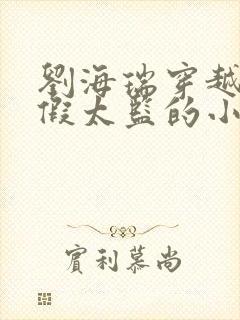 劉海瑞穿越
假太監的小
實利慕尚